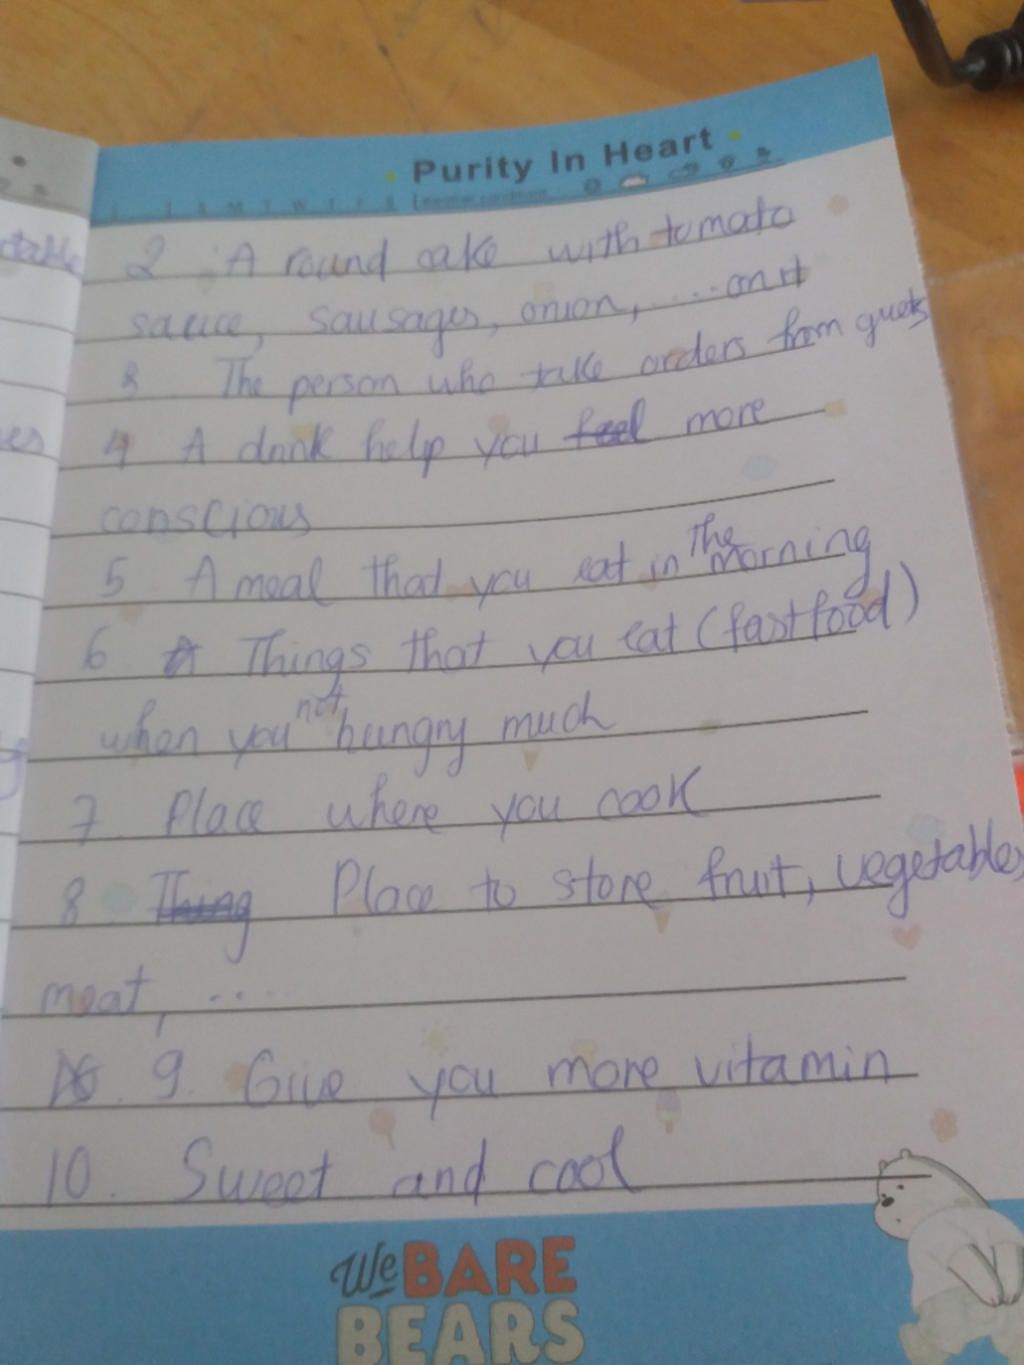 Purity In Heart
ctable
2 A round cake with tomato
sauce, sausages, onion, .... on it
3. The person who take orders from guets
es
4 A drink help you feel more
conscious
5 A meal that you eat in the morning
6 A Things that you eat (fastfood)
when you not hungry much
7. Place where you cook
8 Thing Place to store fruit, vegetables
meat, ....
9. Give you more vitamin
10. Sweet and cool
We BARE
BEARS